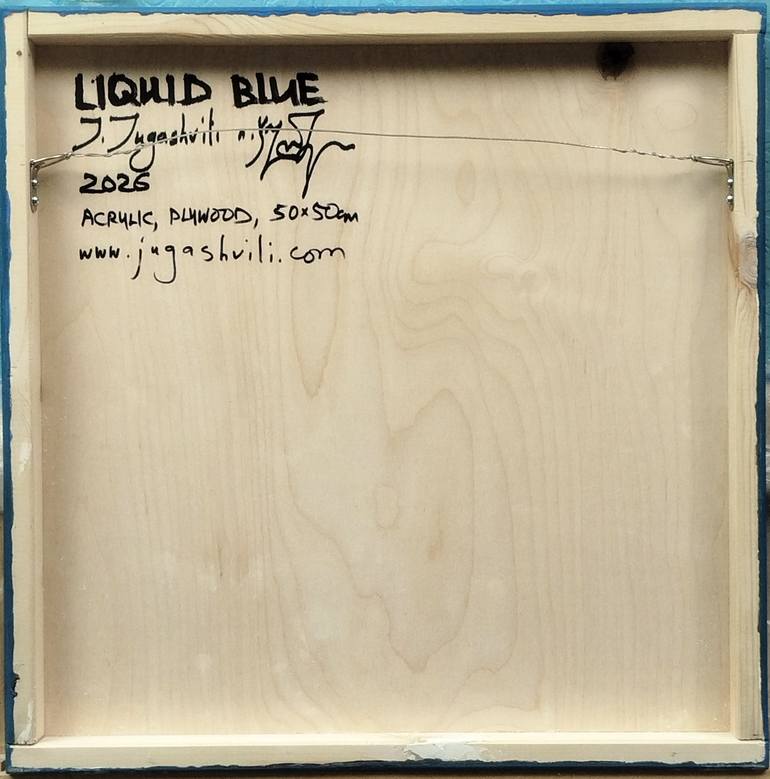 LIQUID BLUE
J. Jugashvili
2026
ACRYLIC, PLYWOOD, 50x50cm
www.jugashvili.com